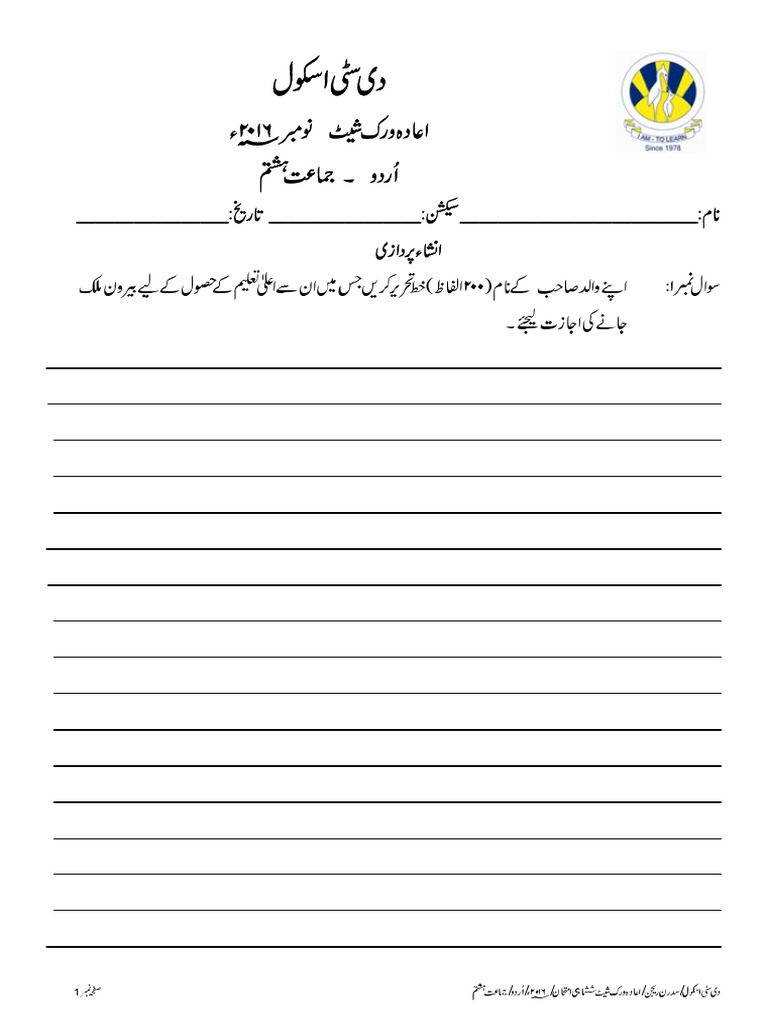 دی سٹی اسکول
I AM - TO LEARN
Since 1978
اعادہ ورک شیٹ نومبر ۲۰۱۶ء
اُردو ۔ جماعت ہشتم
نام:_________________________سیکشن:________________ تاریخ:________________
انشاء پردازی
سوال نمبر ۱: اپنے والد صاحب کے نام (۲۰۰ الفاظ) خط تحریر کریں جس میں ان سے اعلیٰ تعلیم کے حصول کے لیے بیرون ملک
جانے کی اجازت لیجئے ۔
دی سٹی اسکول/سدرن ریجن/اعادہ ورک شیٹ ششماہی امتحان/۲۰۱۶ء/اُردو/جماعت ہشتم صفحہ نمبر 1